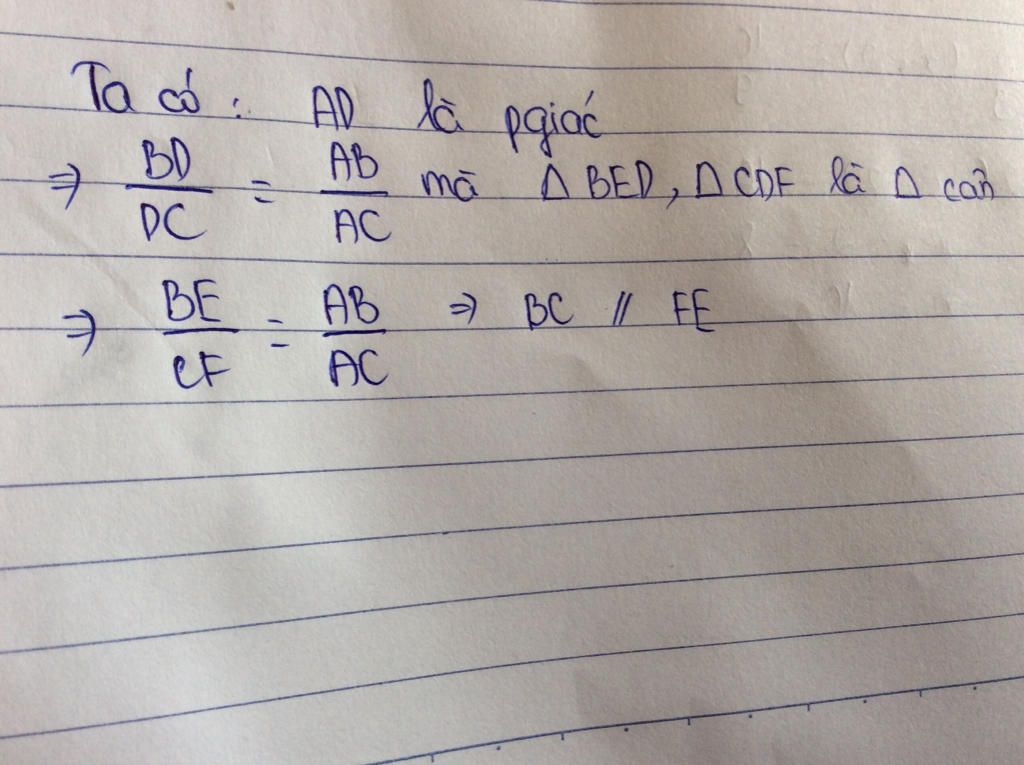 Ta có : AD là pgiác
⇒ BD/DC = AB/AC mà Δ BED, Δ CDF là Δ cân
⇒ BE/CF = AB/AC ⇒ BC // FE